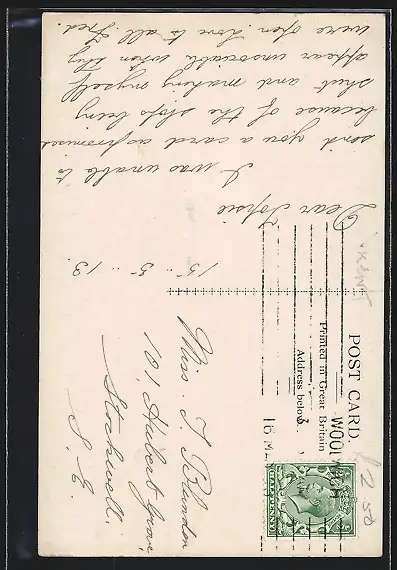 POST CARD
Printed in Great Britain
Address below.
WOOL
16 M
HALFPENNY
15 .. 5 .. 13.
Dear Topsie
I was unable to
send you a card as promised
because of the shops being
shut and making myself
appear unsociable when they
were open. Love to all. Fred.
Miss. T. Blunden
101, Hubert Grove,
Stockwell.
S. E.
KENT
2.50